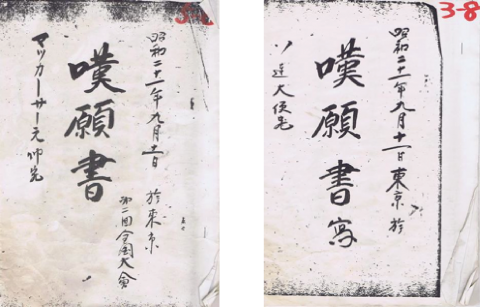 昭和二十一年九月十一日 於東京
第一回全国大会
嘆願書
マツカーサー元帥宛
3-8
昭和二十一年九月十一日東京於
嘆願書写
ソ連大使宛